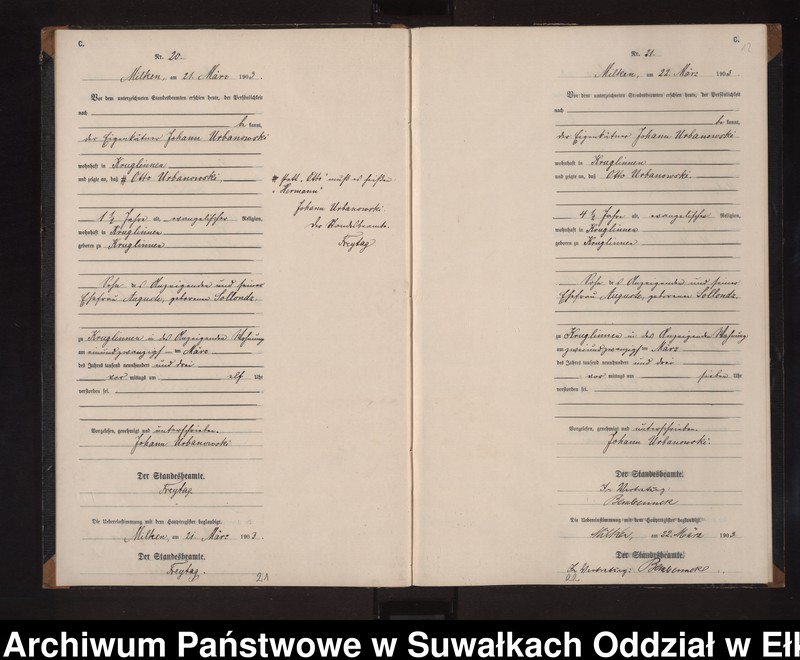 C.
Nr. 20.
Milken, am 21. März 1903
Vor dem unterzeichneten Standesbeamten erschien heute, der Persönlichkeit
nach
be kannt,
der Eigentümer Johann Urbanowski
wohnhaft in Kruglinnen
und zeigte an, daß # Otto Urbanowski
1 ½ Jahre alt, evangelischer Religion,
wohnhaft in Kruglinnen
geboren zu Kruglinnen
Sohn des Anzeigenden und seiner
Ehefrau Auguste, geborenen Sollonds
zu Kruglinnen in des Anzeigenden Wohnung
am einundzwanzigsten März
des Jahres tausend neunhundert und drei
vor mittags um elf Uhr
verstorben sei.
Vorgelesen, genehmigt und unterschrieben.
Johann Urbanowski.
Der Standesbeamte.
Freytag
Die Uebereinstimmung mit dem Hauptregister beglaubigt.
Milken, am 21. März 1903.
Der Standesbeamte.
Freytag.
21
# statt „Otto“ muß es heißen
„Hermann“
Johann Urbanowski
Der Standesbeamte.
Freytag
C.
12
Nr. 21.
Milken, am 22. März 1903
Vor dem unterzeichneten Standesbeamten erschien heute, der Persönlichkeit
nach
be kannt,
der Eigentümer Johann Urbanowski
wohnhaft in Kruglinnen
und zeigte an, daß Otto Urbanowski.
4 ½ Jahre alt, evangelischer Religion,
wohnhaft in Kruglinnen
geboren zu Kruglinnen
Sohn des Anzeigenden und seiner
Ehefrau Auguste, geborenen Sollonds.
zu Kruglinnen in des Anzeigenden Wohnung
am zweiundzwanzigsten März
des Jahres tausend neunhundert und drei
vor mittags um sieben Uhr
verstorben sei.
Vorgelesen, genehmigt und unterschrieben.
Johann Urbanowski.
Der Standesbeamte.
In Vertretung:
Die Uebereinstimmung mit dem Hauptregister beglaubigt.
Milken, am 22. März 1903
Der Standesbeamte.
In Vertretung:
22
Archiwum Państwowe w Suwałkach Oddział w Ełk